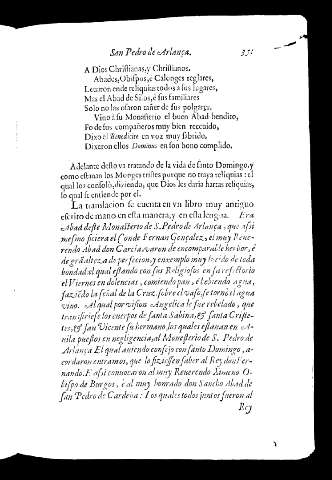 San Pedro de Arlança. 351
A Dios Christianas, y Christianos.
Abades, Obispos, è Calonges reglares,
Leuaron ende reliquias todos a sus lugares,
Mas el Abad de Silos, è sus familiares
Solo no las osaron tañer de sus polgares.
Vino à su Monesterio el buen Abad bendito,
Fo de sus compañeros muy bien recebido,
Dixo el Benedicite en voz muy sobido,
Dixeron ellos Dominus en son bono complido.
Adelante desto va tratando de la vida de santo Domingo, y
como estauan los Monges tristes porque no traya reliquias: el
qual los consolò, diziendo, que Dios les daria hartas reliquias,
lo qual se entiende por el.
La translacion se cuenta en vn libro muy antiguo
escrito de mano en esta manera, y en esta lengua. Era
Abad deste Monasterio de S. Pedro de Arlança, que assi
mesmo ficiera el Conde Fernan Gonçalez, el muy Reue-
rendo Abad don Garcia, varon de encomparable hechor, è
de grãalteza, è de perfeccion, y enxemplo muy lucido de toda
bondad. el qual estando con sus Religiosos en su refectorio
el Viernes en dolencias, comiendo pan, è bebiendo agua,
faziẽdo la señal de la Cruz sobre el vaso, se tornò el agua
vino. Al qual por vision Angelica le fue rebelado, que
transfiriese los cuerpos de santa Sabina, & santa Criste-
tes, & san Vicente su hermano, los quales estauan en A-
uila puestos en negligencia, al Monesterio de S. Pedro de
Arlança. El qual auiendo consejo con santo Domingo, a-
cordaron entramos, que lo fiziessen saber al Rey don Fer-
nando. E assi conuocaron al muy Reuerendo Ximeno O-
bispo de Burgos, è al muy honrado don Sancho Abad de
san Pedro de Cardeña: Los quales todos juntos fueron al
Rey